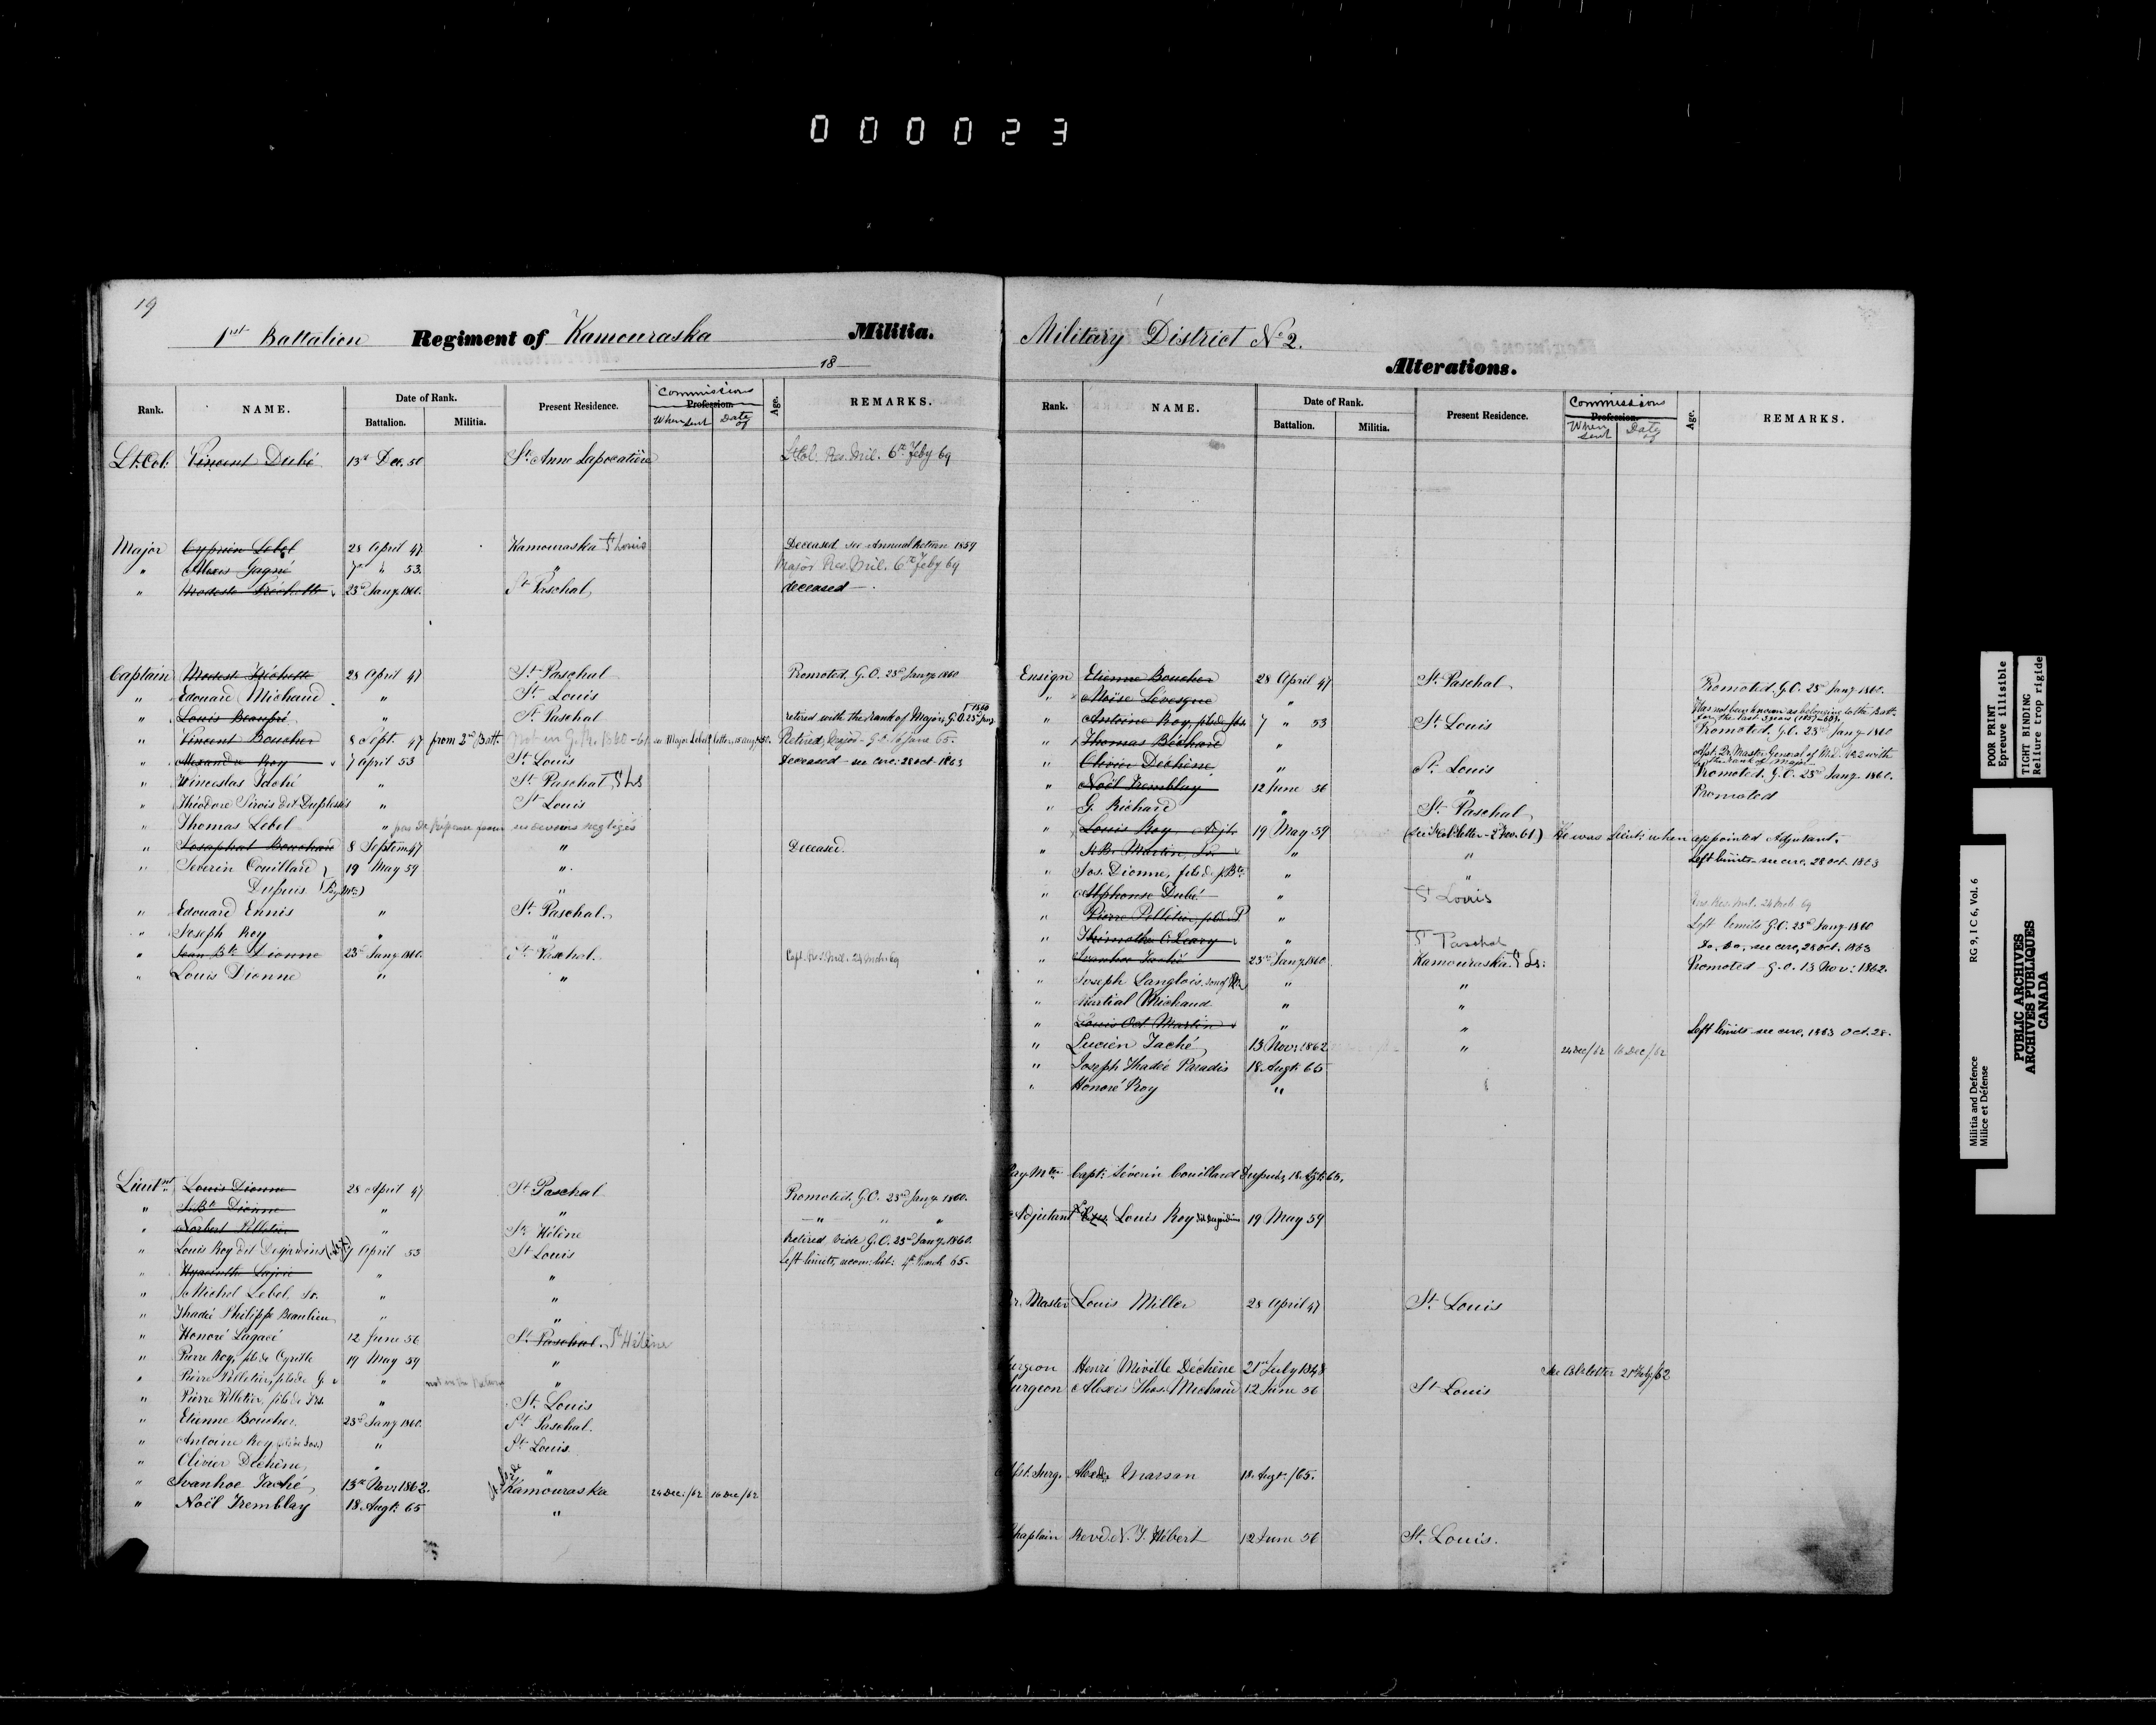 000023
19
1st Battalion Regiment of Kamouraska Militia.
18
Rank. NAME. Date of Rank. Battalion. Militia. Present Residence. Commissions Profession. When sent Date of Age. REMARKS.
Lt. Col. Vincent Dubé 13th Dec. 50 St. Anne Lapocatière Lt Col. Res. Mil. 6th Feby 69
Major Cyprien Lebel 28 April 47 Kamouraska St Louis Deceased see Annual Return 1859
" Alexis Gagné 7th " 53. " Major Res. Mil. 6th Feby 69
" Modeste Fréchette 23rd Jany. 1860. St. Paschal deceased
Captain Modest Fréchette 28 April 47 St. Paschal Promoted. G.O. 23rd Jany. 1860
" Edouard Michaud " St. Louis
" Louis Beaupré " St. Paschal retired with the rank of Major, G.O. 23rd Jany. 1860
" Vincent Boucher 8 Sept. 47 from 2nd Batt. Retired, Major - G.O. 16 June 65.
" Alexandre Roy 7 April 53 St. Louis Deceased see circ: 28 Oct 1863
" Winceslas Taché " St. Paschal, St Ls
" Théodore Sirois dit Duplessis " St. Louis
" Thomas Lebel " pas de réponse
" Josaphat Bouchard 8 Septem 47 " Deceased
" Severin Couillard 19 May 59 "
Dupuis (Pay Mtr) "
" Edouard Ennis " St. Paschal.
" Joseph Roy " "
" Jean Bte Dionne 23rd Jany. 1860. St. Paschal. Capt. Res. Mil. 24 Mch 69
" Louis Dionne " "
Lieutnt Louis Dionne 28 April 47 St. Paschal Promoted. G.O. 23rd Jany. 1860.
" J. Bte Dionne " " " " "
" Norbert Pelletier " St. Hélène Retired vide G.O. 23rd Jany. 1860.
" Louis Roy dit Desjardins (Adjt) 7 April 53 St Louis
" Hyacinthe Lajoie " " Left limits, 4th March 65.
" Michel Lebel Jr. " "
" Thadée Philippe Beaulieu " "
" Honoré Lagacé 12 June 56 St. Paschal. St Hélène
" Pierre Roy, fils de Cyrille 19 May 59 "
" Pierre Pelletier, fils de G. " not in the Return "
" Pierre Pelletier, fils de Frs. " St. Louis
" Etienne Boucher 23rd Jany. 1860. St. Paschal.
" Antoine Roy (fils de Jos.) " St. Louis
" Olivier Dechêne " "
" Ivanhoe Taché 13th Novr. 1862. Kamouraska 24 Dec./62 16 Dec/62
" Noël Tremblay 18 Augt: 65 "
Military District No 2.
Alterations.
Rank. NAME. Date of Rank. Battalion. Militia. Present Residence. Commissions Profession. When sent Date of Age. REMARKS.
Ensign Etienne Boucher 28 April 47 St. Paschal Promoted. G.O. 23rd Jany 1860.
" Moïse Lévesque " Has not been known as belonging to the Batt. for the last 3 years (1857-60).
" Antoine Roy, fils de Jos. 7 " 53 St. Louis Promoted. G.O. 23rd Jany 1860
" Thomas Béchard " Asst. Qr. Master General of Mil. No. 2 with the rank of Major
" Olivier Dechêne " St. Louis Promoted. G.O. 23rd Jany 1860.
" Noël Tremblay 12 June 56 " Promoted
" G. Richard " St. Paschal
" Louis Roy Adjt. 19 May 59 (See Col: letter - 2d Nov. 61) He was Lieut: when appointed Adjutant.
" J. B. Martin, Jr. " " Left limits see circ. 28 Oct 1863
" Jos. Dionne, fils de J. Bte. " "
" Alphonse Dubé " St Louis Res. Mil. 24 Mch 69
" Pierre Pelletier, fils de P. " Left limits G.O. 23rd Jany 1860
" Thimothe O'Leary " St Paschal Do. Do., see circ, 28 Oct. 1863
" Ivanhoe Taché 23rd Jany. 1860 Kamouraska St Ls: Promoted G.O. 13 Nov: 1862.
" Joseph Langlois, son of " "
" Martial Michaud " "
" Louis Oct Martin " " Left limits see circ, 1863 Oct. 28.
" Lucien Taché 13 Nov: 1862 " 24 Dec/62 16 Dec/62
" Joseph Thadée Paradis 18. Augt: 65
" Honoré Roy "
Pay Mtr: Capt: Séverin Couillard Dupuis, 18. Agt: 65.
Adjutant Louis Roy dit Desjardins 19 May 59
Qr. Master Louis Miller 28 April 47 St. Louis
Surgeon Henri Miville Dechêne 21st July 1848 See Col: letter 21st July/62
Surgeon Alexis Thos. Michaud 12 June 56 St Louis
Asst. Surg. Marsan 18. Augt./65.
Chaplain Revd. N. T. Hébert 12 June 56 St. Louis.
POOR PRINT
Epreuve illisible
TIGHT BINDING
Reliure trop rigide
Militia and Defence
Milice et Défense
RG 9, I C 6, Vol. 6
PUBLIC ARCHIVES
ARCHIVES PUBLIQUES
CANADA